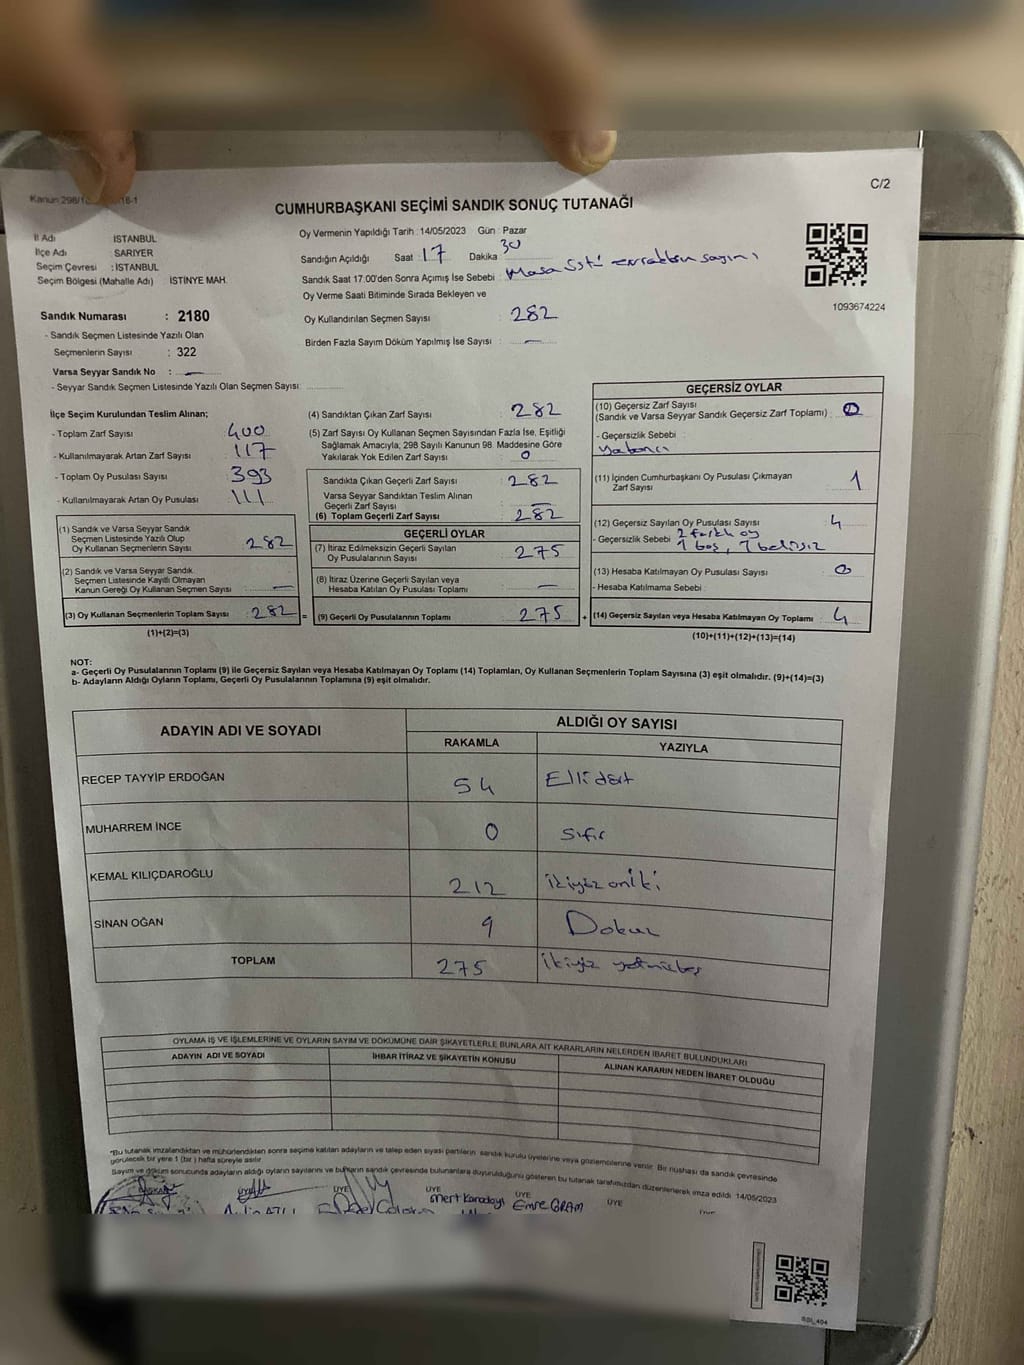 Kanun 298/1
C/2
CUMHURBAŞKANI SEÇİMİ SANDIK SONUÇ TUTANAĞI
İl Adı İSTANBUL
İlçe Adı SARIYER
Seçim Çevresi : İSTANBUL
Seçim Bölgesi (Mahalle Adı) İSTİNYE MAH.
Oy Vermenin Yapıldığı Tarih : 14/05/2023 Gün : Pazar
Sandığın Açıldığı Saat 17 Dakika 30
Sandık Saat 17.00'den Sonra Açımış İse Sebebi : Masa üstü evrakların sayımı
Oy Verme Saati Bitiminde Sırada Bekleyen ve
Oy Kullandırılan Seçmen Sayısı : 282
Birden Fazla Sayım Döküm Yapılmış İse Sayısı : —
1093674224
Sandık Numarası : 2180
- Sandık Seçmen Listesinde Yazılı Olan
Seçmenlerin Sayısı : 322
Varsa Seyyar Sandık No : —
- Seyyar Sandık Seçmen Listesinde Yazılı Olan Seçmen Sayısı:
İlçe Seçim Kurulundan Teslim Alınan;
- Toplam Zarf Sayısı 400
- Kullanılmayarak Artan Zarf Sayısı 117
- Toplam Oy Pusulası Sayısı 393
- Kullanılmayarak Artan Oy Pusulası 111
(1) Sandık ve Varsa Seyyar Sandık
Seçmen Listesinde Yazılı Olup
Oy Kullanan Seçmenlerin Sayısı : 282
(2) Sandık ve Varsa Seyyar Sandık
Seçmen Listesinde Kayıtlı Olmayan
Kanun Gereği Oy Kullanan Seçmen Sayısı : —
(3) Oy Kullanan Seçmenlerin Toplam Sayısı : 282 =
(1)+(2)=(3)
(4) Sandıktan Çıkan Zarf Sayısı : 282
(5) Zarf Sayısı Oy Kullanan Seçmen Sayısından Fazla İse, Eşitliği
Sağlamak Amacıyla; 298 Sayılı Kanunun 98. Maddesine Göre
Yakılarak Yok Edilen Zarf Sayısı : 0
Sandıkta Çıkan Geçerli Zarf Sayısı : 282
Varsa Seyyar Sandıktan Teslim Alınan
Geçerli Zarf Sayısı : —
(6) Toplam Geçerli Zarf Sayısı : 282
GEÇERLİ OYLAR
(7) İtiraz Edilmeksizin Geçerli Sayılan
Oy Pusulalarının Sayısı : 275
(8) İtiraz Üzerine Geçerli Sayılan veya
Hesaba Katılan Oy Pusulası Toplamı : —
(9) Geçerli Oy Pusulalarının Toplamı : 275 +
GEÇERSİZ OYLAR
(10) Geçersiz Zarf Sayısı
(Sandık ve Varsa Seyyar Sandık Geçersiz Zarf Toplamı) : 0
- Geçersizlik Sebebi :
Yabancı
(11) İçinden Cumhurbaşkanı Oy Pusulası Çıkmayan
Zarf Sayısı : 1
(12) Geçersiz Sayılan Oy Pusulası Sayısı : 4
- Geçersizlik Sebebi : 2 farklı oy
1 boş, 1 belirsiz
(13) Hesaba Katılmayan Oy Pusulası Sayısı : 0
- Hesaba Katılmama Sebebi :
(14) Geçersiz Sayılan veya Hesaba Katılmayan Oy Toplamı : 4
(10)+(11)+(12)+(13)=(14)
NOT:
a- Geçerli Oy Pusulalarının Toplamı (9) ile Geçersiz Sayılan veya Hesaba Katılmayan Oy Toplamı (14) Toplamları, Oy Kullanan Seçmenlerin Toplam Sayısına (3) eşit olmalıdır. (9)+(14)=(3)
b- Adayların Aldığı Oyların Toplamı, Geçerli Oy Pusulalarının Toplamına (9) eşit olmalıdır.
ADAYIN ADI VE SOYADI ALDIĞI OY SAYISI
RAKAMLA YAZIYLA
RECEP TAYYİP ERDOĞAN 54 Ellidört
MUHARREM İNCE 0 Sıfır
KEMAL KILIÇDAROĞLU 212 ikiyüz oniki
SİNAN OĞAN 9 Dokuz
TOPLAM 275 ikiyüz yetmişbeş
OYLAMA İŞ VE İŞLEMLERİNE VE OYLARIN SAYIM VE DÖKÜMÜNE DAİR ŞİKAYETLERLE BUNLARA AİT KARARLARIN NELERDEN İBARET BULUNDUKLARI
ADAYIN ADI VE SOYADI İHBAR İTİRAZ VE ŞİKAYETİN KONUSU ALINAN KARARIN NEDEN İBARET OLDUĞU
*Bu tutanak imzalandıktan ve mühürlendikten sonra seçime katılan adayların ve talep eden siyasi partilerin sandık kurulu üyelerine veya gözlemcilerine verilir. Bir nüshası da sandık çevresinde
görülecek bir yere 1 (bir) hafta süreyle asılır.
Sayım ve döküm sonucunda adayların aldığı oyların sayılarını ve bunların sandık çevresinde bulunanlara duyurulduğunu gösteren bu tutanak tarafımızdan düzenlenerek imza edildi. 14/05/2023
BAŞKAN ÜYE ÜYE ÜYE ÜYE ÜYE
Mert Karadayı Emre GRAM